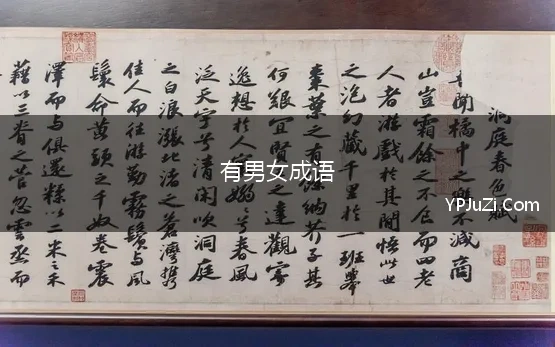 洞庭春色賦
聞橘中之樂不減商
山豈霜餘之不食而四老
人者游戲於其間悟此世
之泡幻藏千里於一班舉
棗葉之有餘納芥子其
何艱宜賢之達觀寄
逸想於人嫋嫋兮春風
泛天宇兮清閑吹洞庭
之白浪漲北渚之蒼灣攜
佳人而往游勒霧鬢與風
鬟命黃頭之千奴卷震
澤而與俱還糅以二米之禾
藉以三脊之菅忽雲烝而
有男女成语
YPJuZi.Com